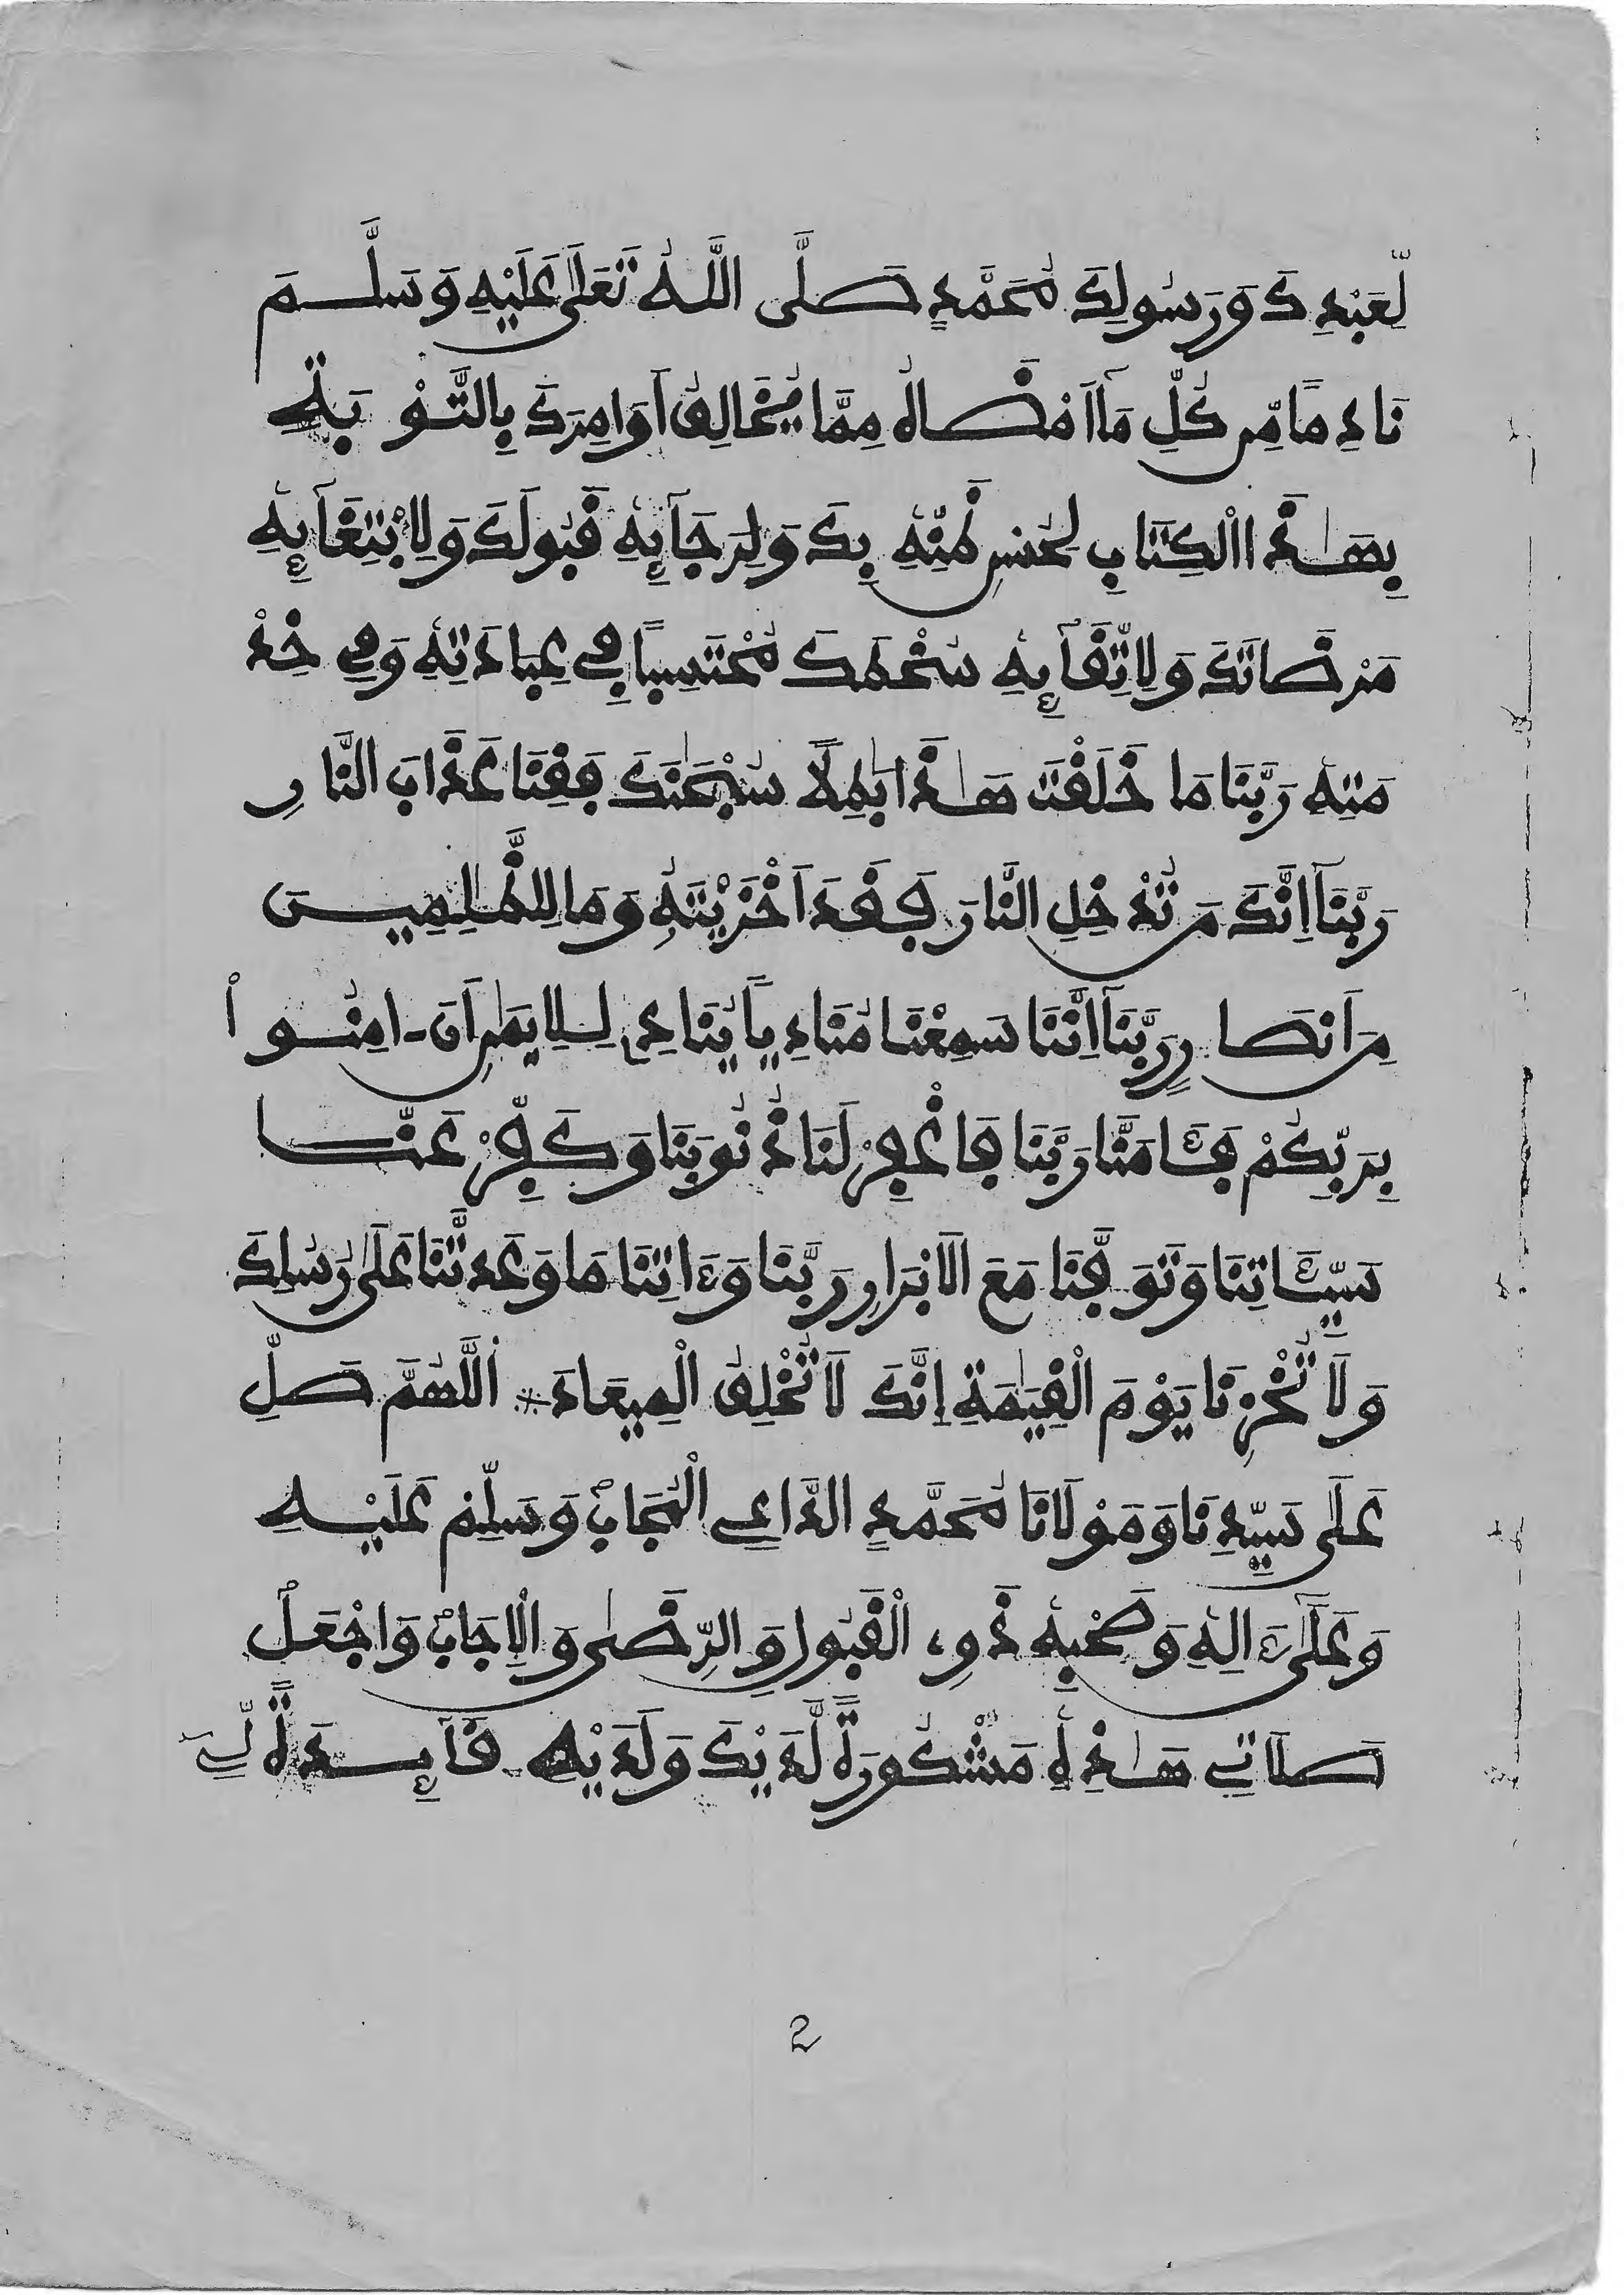 لِّعَبْدِكَ وَرَسُولِكَ مُحَمَّدٍ صَلَّى اللَّهُ تَعَلَى عَلَيْهِ وَسَلَّمَ
نَادِمًا مِّن كُلِّ مَآ اَمْضَاهُ مِمَّا يُخَالِفُ أَوَامِرَكَ بِالتَّوْبَةِ
بِهَٰذَا الْكِتَابِ لِحُسْنِ ظَنِّهِ بِكَ وَلِرَجَآئِهِ قَبُولَكَ وَلِابْتِغَآئِهِ
مَرْضَاتَكَ وَلِاتِّقَآئِهِ سُخْطَكَ مُحْتَسِبًا فِي عِبَادَتِهِ وَفِي خِدْ
مَتِهِ رَبَّنَا مَا خَلَقْتَ هَٰذَا بَٰطِلًا سُبْحَٰنَكَ فَقِنَا عَذَابَ النَّارِ
رَبَّنَآ إِنَّكَ مَن تُدْخِلِ النَّارَ فَقَدَ اَخْزَيْتَهُ وَمَا لِلظَّٰلِمِينَ
مِنَ اَنصَارٍ رَّبَّنَآ إِنَّنَا سَمِعْنَا مُنَادِيًا يُنَادِي لِلِايمَٰنِ أَنَ - امِنُوا
بِرَبِّكُمْ فَـَٔامَنَّا رَبَّنَا فَاغْفِرْ لَنَا ذُنُوبَنَا وَكَفِّرْ عَنَّا
سَيِّـَٔاتِنَا وَتَوَفَّنَا مَعَ الَابْرَارِ رَبَّنَا وَءَاتِنَا مَا وَعَدتَّنَا عَلَىٰ رُسُلِكَ
وَلَا تُخْزِنَا يَوْمَ الْقِيَٰمَةِ إِنَّكَ لَا تُخْلِفُ الْمِيعَادَ * اللَّهُمَّ صَلِّ
عَلَى سَيِّدِنَا وَمَوْلَانَا مُحَمَّدٍ الدَّاعِي الْمُجَابْ وَسَلِّمْ عَلَيْهِ
وَعَلَىٰٓ ءَالِهِ وَصَحْبِهِ ذَوِي الْقَبُولِ وَالرِّضَىٰ وَالْإِجَابْ وَاجْعَلْ
صَلَاتِي هَٰذِهِ مَشْكُورَةً لَّدَيْكَ وَلَدَيْهِ قَآئِدَةً لِّي
2